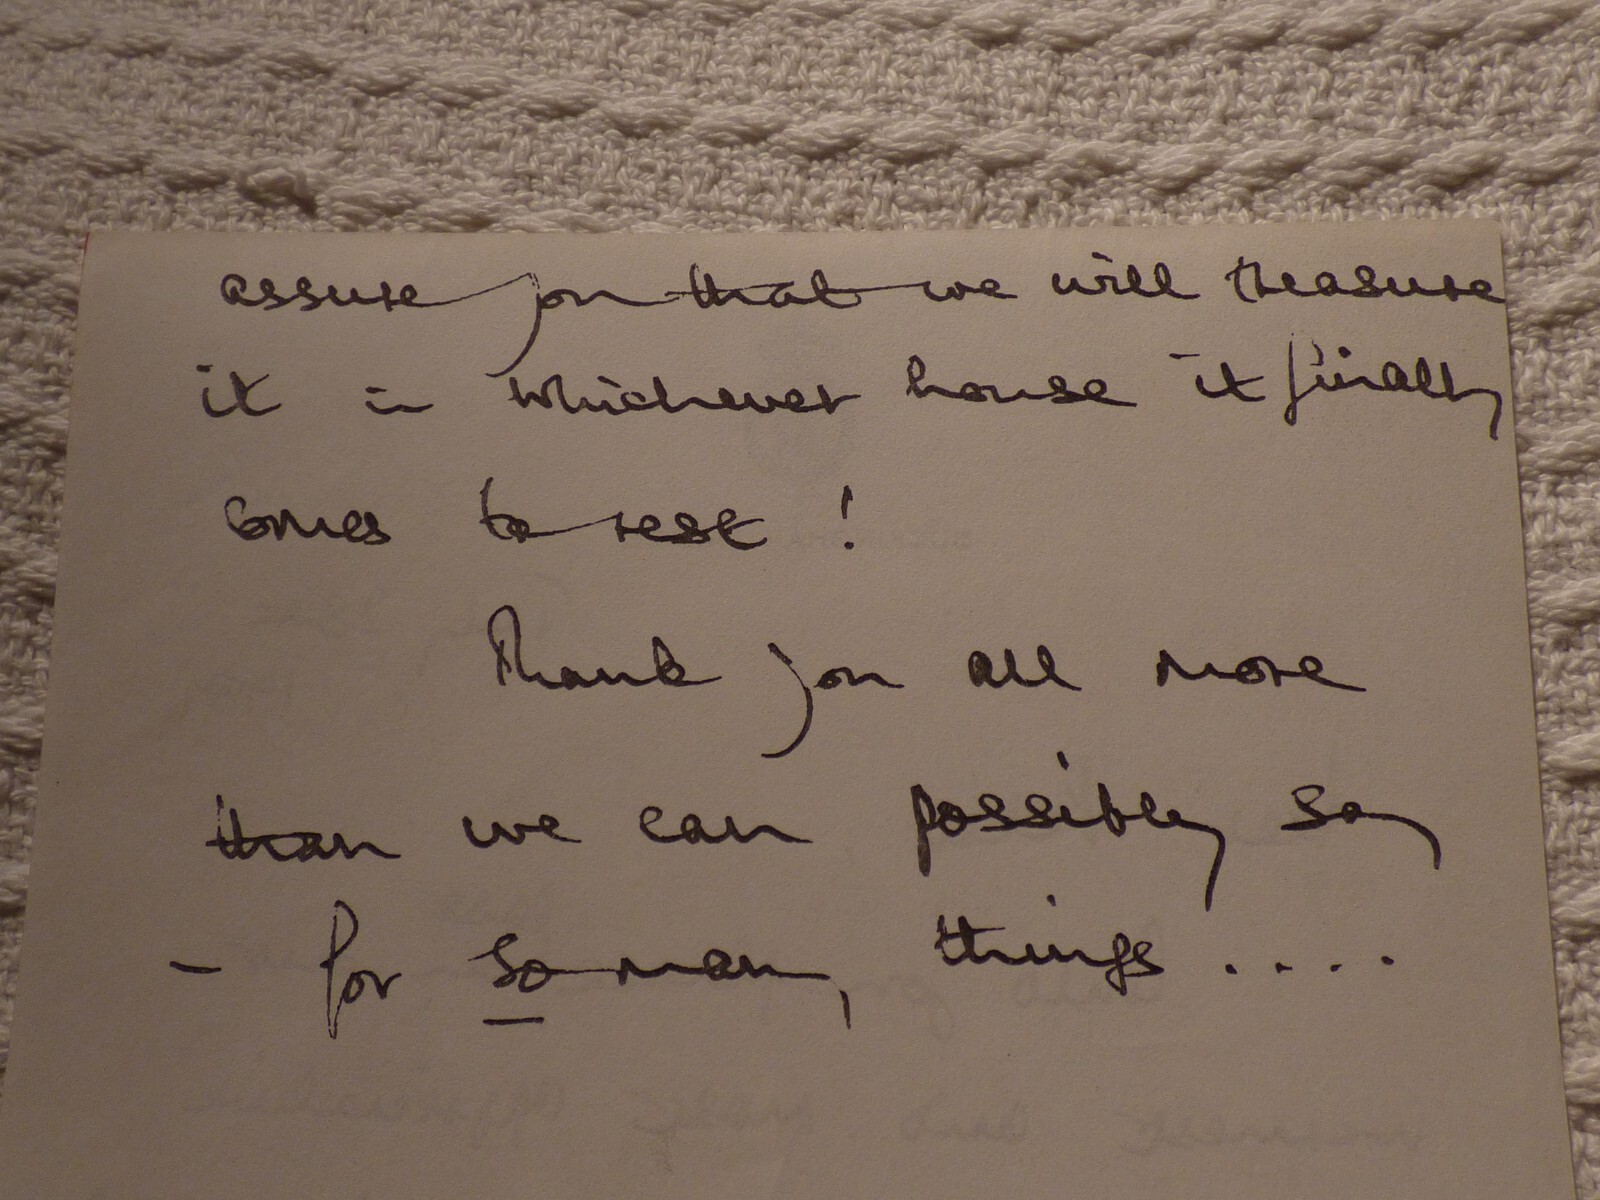 assure you that we will treasure
it in whichever house it finally
comes to rest !
Thank you all more
than we can possibly say
- for so many things ....